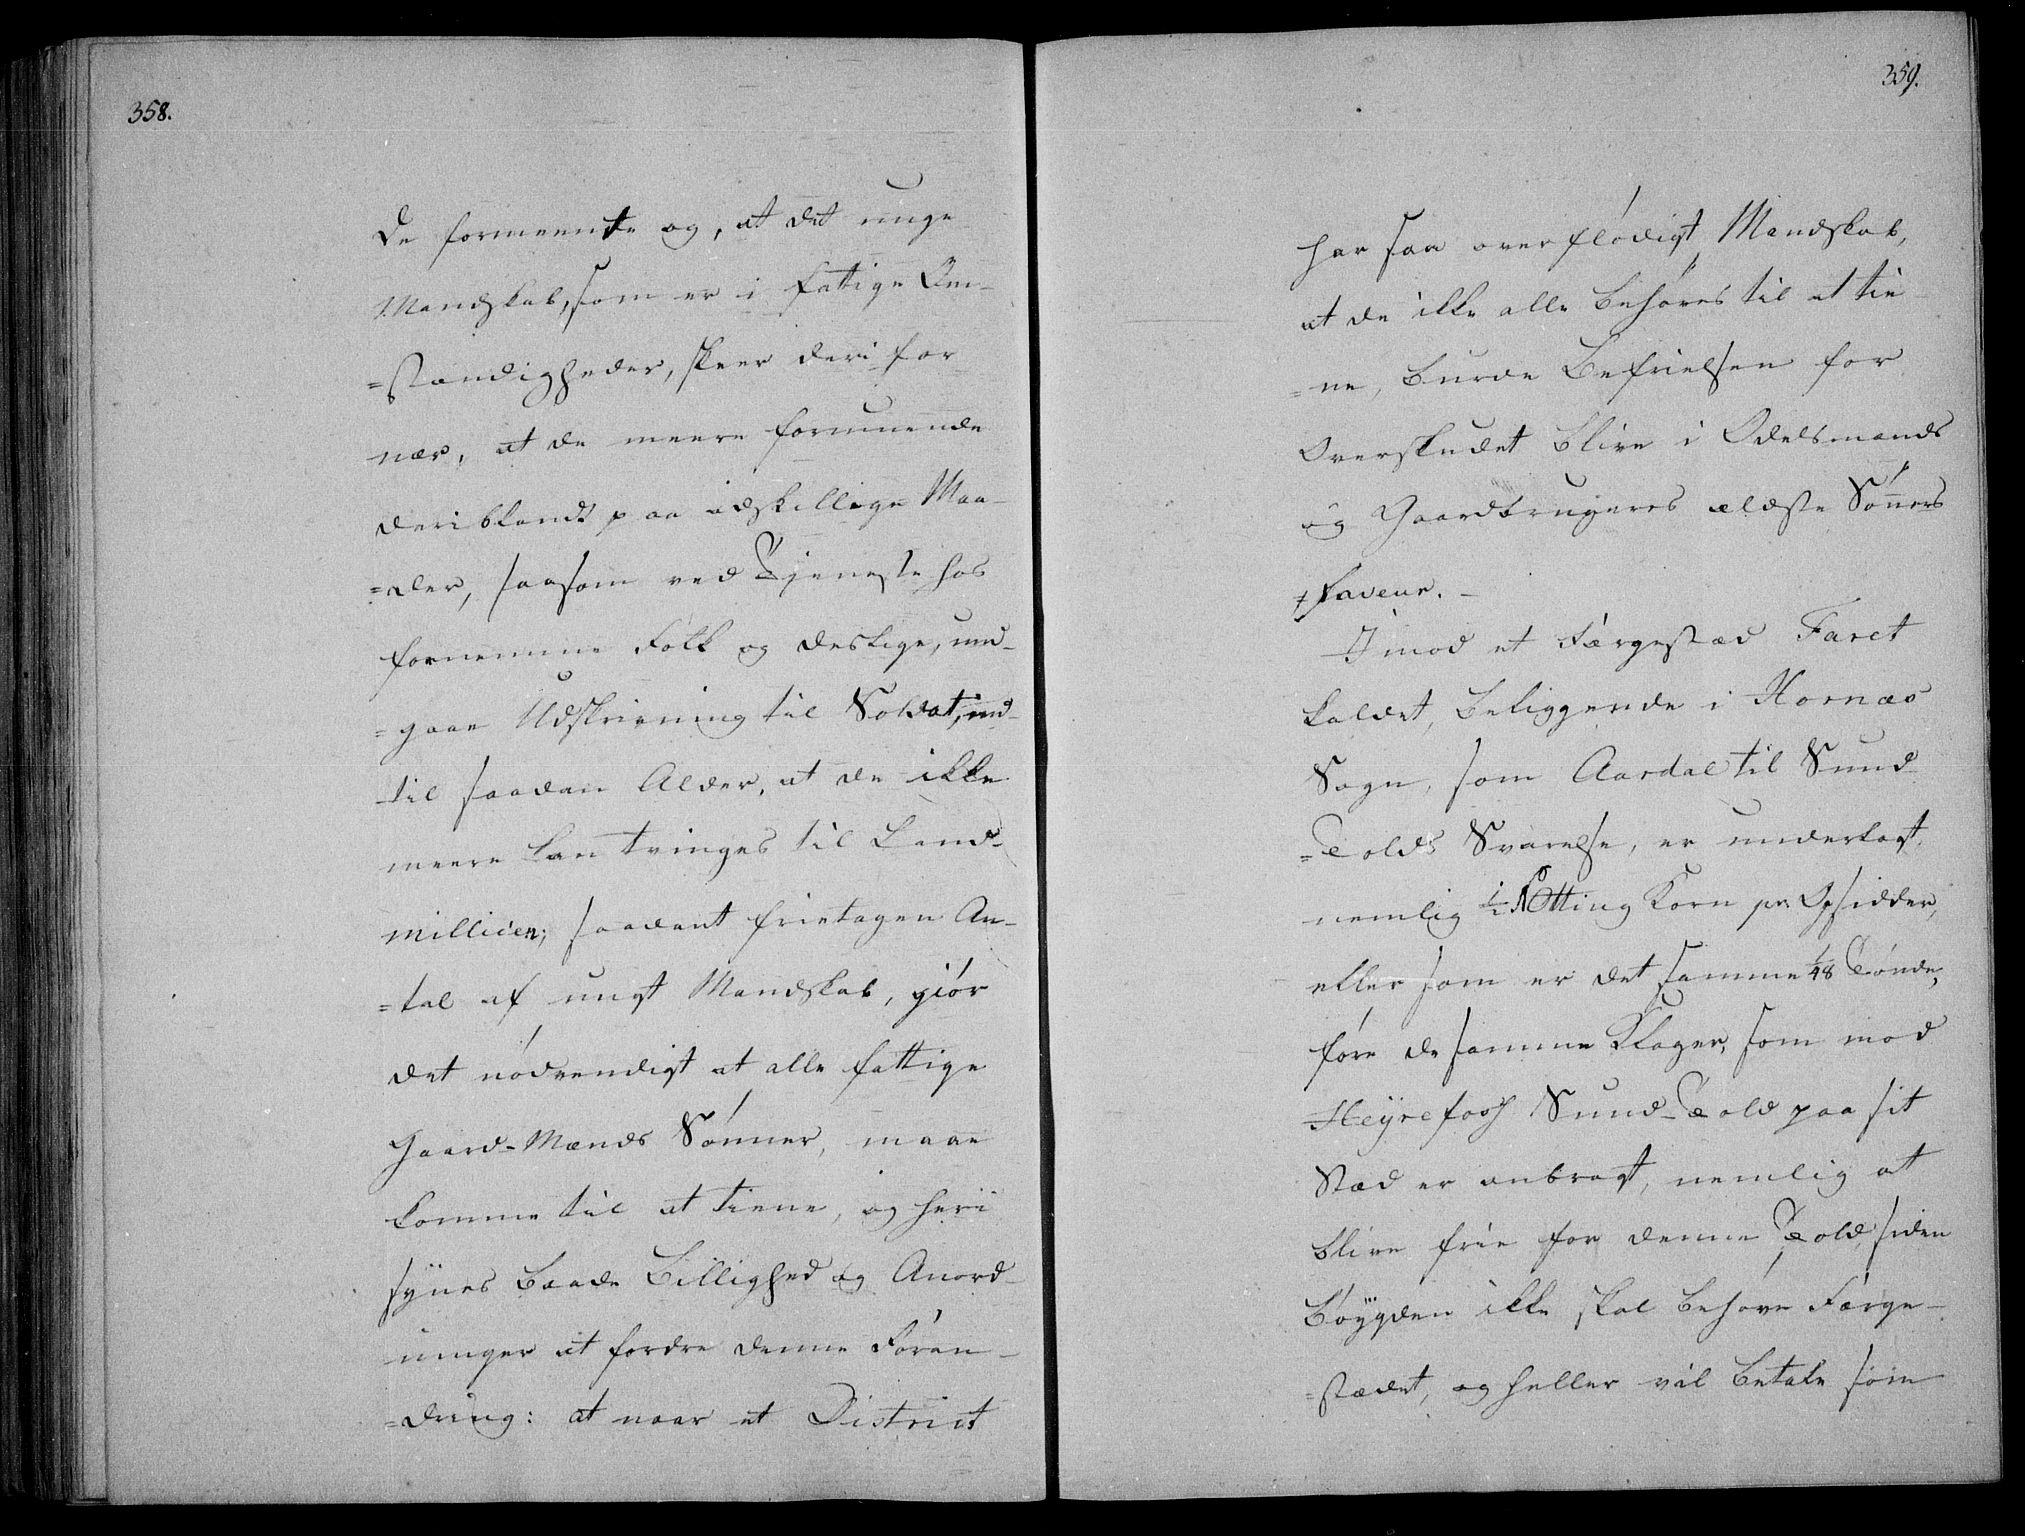 358.
De formeente og, at det unge
Mandskab, som er i fattige Om-
=stændigheder, skeer deri for
nær, at de meere formuende
deriblandt paa adskillige Maa-
=der, saasom ved Tjeneste hos
fornemme Folk og deslige, und-
=gaae Udskrivning til Soldat, ind-
til saadan Alder, at de ikke
meere kan tvinges til Land-
millicen; saadant frietagen An-
=tal af ungt Mandskab, giör
det nödvendigt at alle fattige
Gaard-Mænds Sönner, maae
komme til at tiene, og heri
synes baade Billighed og Anord-
ninger at fordre denne Foran-
=dring: at naar et District
359.
har saa overflödigt Mandskab,
at de ikke alle behöves til at tie
=ne, burde Befrielsen for
Overskudet blive i Odelsmands
og Gaardbrugeres ældste Sönners
Faveur. -
Imod et Færgestæd Faret
kaldet, beliggende i Hornæs
Sogn, som Aardal til Sund-
=Tolds Svarelse, er underlagt,
nemlig 1/2 Otting Korn pr. Opsidder,
eller som er det samme 1/48 Tönde,
före de samme Klager, som mod
Heyrefosh Sund-Told paa sit
Stæd er anbragt, nemlig at
blive frie for denne Told, siden
Böygden ikke skal behöve Færge-
=stædet, og heller vil betale som